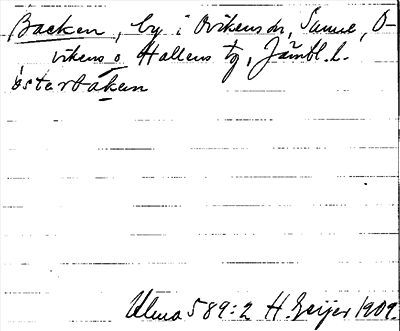 Backen, by i Ovikens sn, samme, O-
vikens o Hallens tg, Jämtl. l.
östərbakən
Ulma 589:2 H. Geijer 1909.